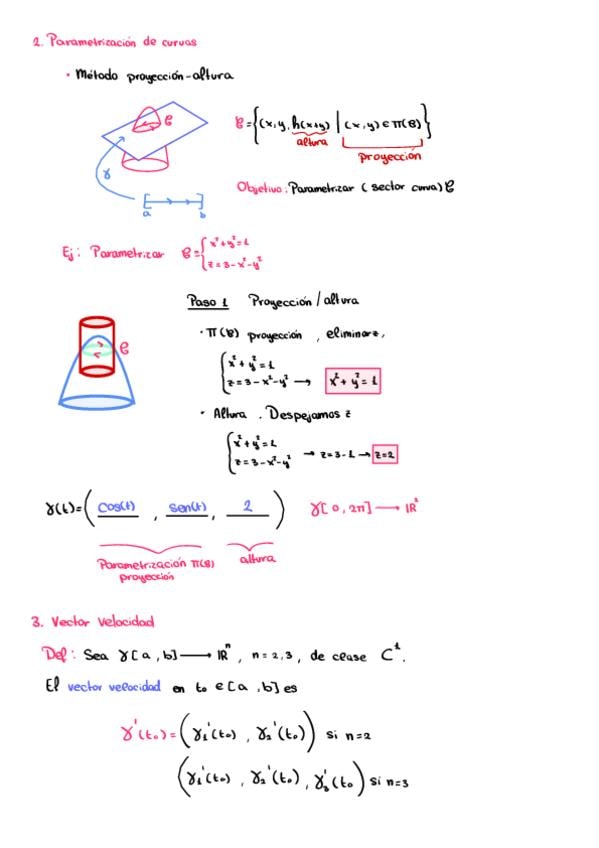 2. Parametrización de curvas
• Método proyección-altura
C = {(x, y, h(x+y) | (x, y) ∈ π(B)}
altura
proyección
C
γ
a b
Objetivo: Parametrizar (sector curva) C
Ej: Parametrizar C = { x²+y²=1
z = 3-x²-y²
Paso 1 Proyección/altura
• π(B) proyección, eliminar z,
C
{ x²+y²=1
z = 3-x²-y² → x²+y²=1
• Altura. Despejamos z
{ x²+y²=1
z = 3-x²-y² → z = 3-1 → z=2
γ(t) = ( cos(t), sen(t), 2 ) γ[0, 2π] → ℝ²
Parametrización π(B) altura
proyección
3. Vector velocidad
Def: Sea γ[a, b] → ℝⁿ, n = 2,3, de clase C¹.
El vector velocidad en t₀ ∈ [a, b] es
γ'(t₀) = (γ₁'(t₀), γ₂'(t₀)) si n=2
(γ₁'(t₀), γ₂'(t₀), γ₃'(t₀) si n=3